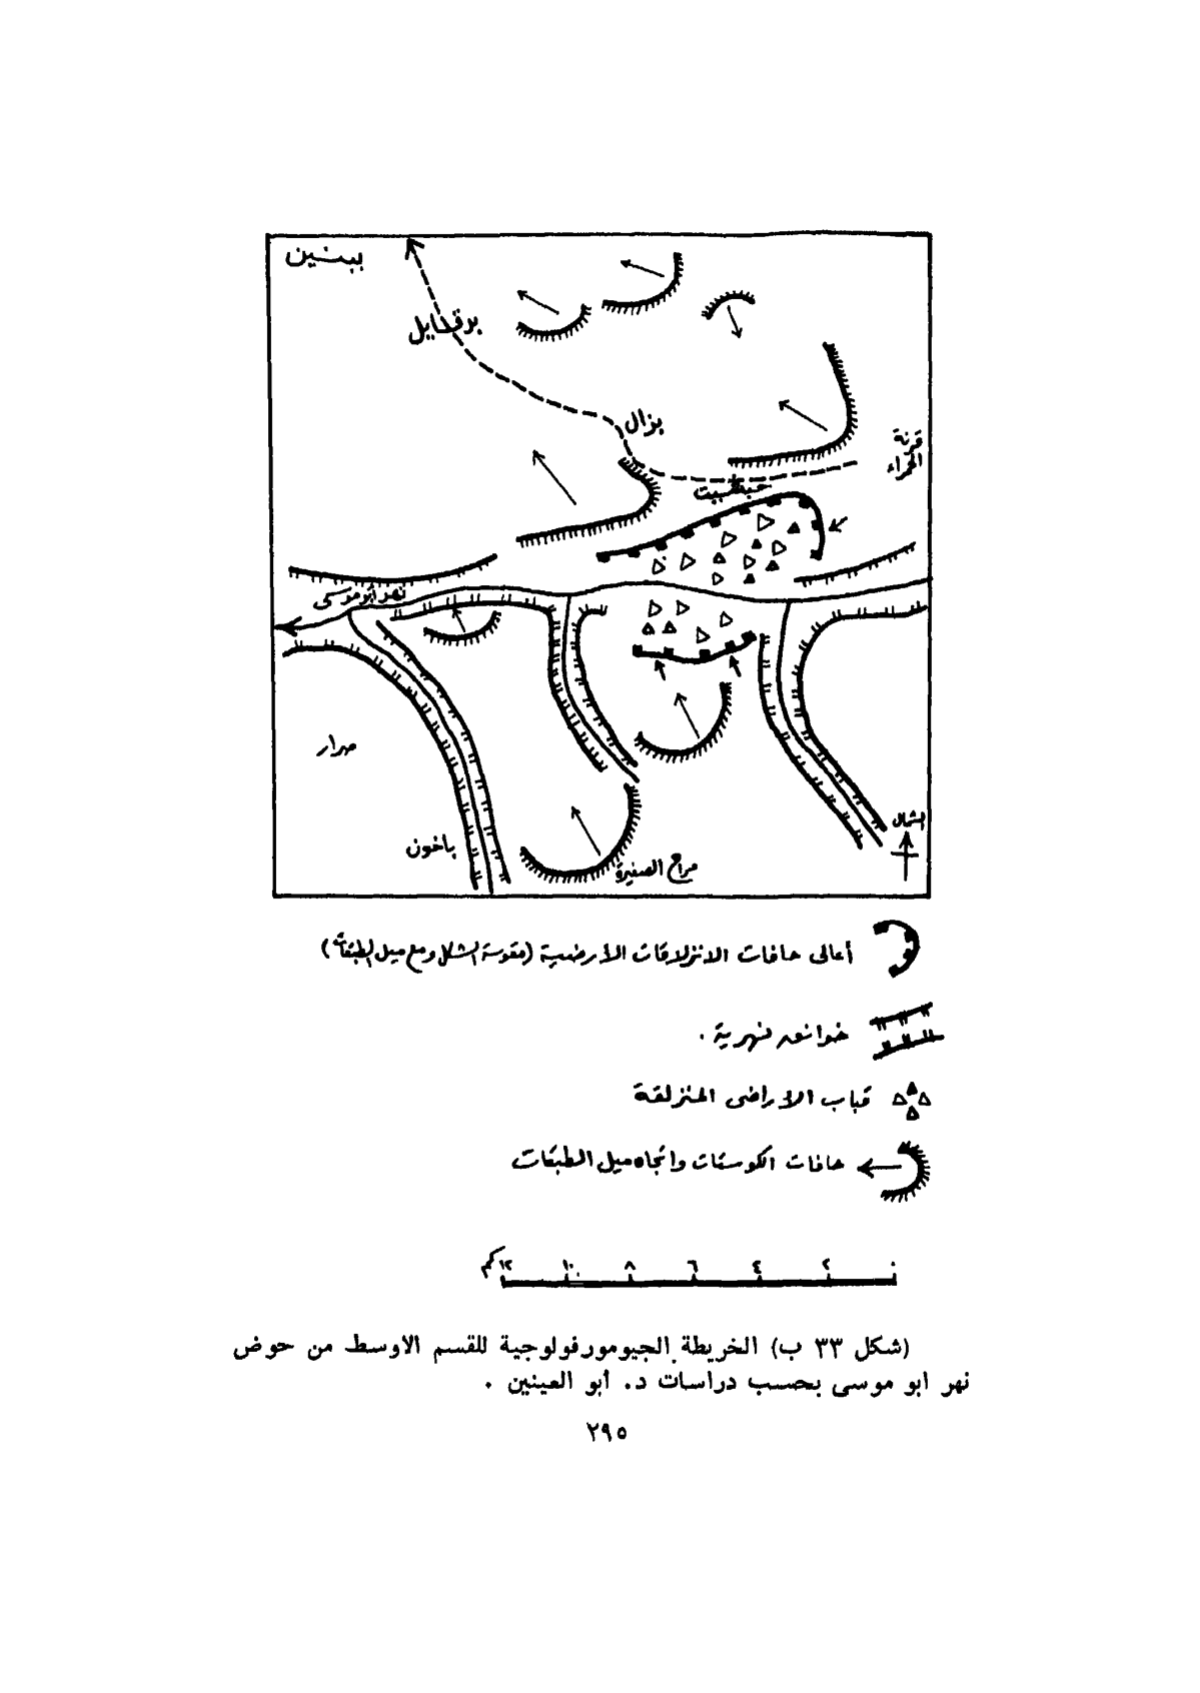 ببنين
برقايل
بزال
قرنة
الحمراء
حبشيت
نهر أبو موسى
مرار
الشمال
باخون
مراح الصغيرة
أعالى حافات الانزلاقات الأرضية (مقوسة الشكل ومع ميل الطبقات)
خوانق نهرية .
قباب الاراضى المنزلقة
حافات الكوستات واتجاه ميل الطبقات
٠ ٢ ٤ ٦ ٨ ١٠ ١٢ كم
(شكل ٣٣ ب) الخريطة الجيومورفولوجية للقسم الاوسط من حوض
نهر ابو موسى بحسب دراسات د. أبو العينين .
٢٩٥